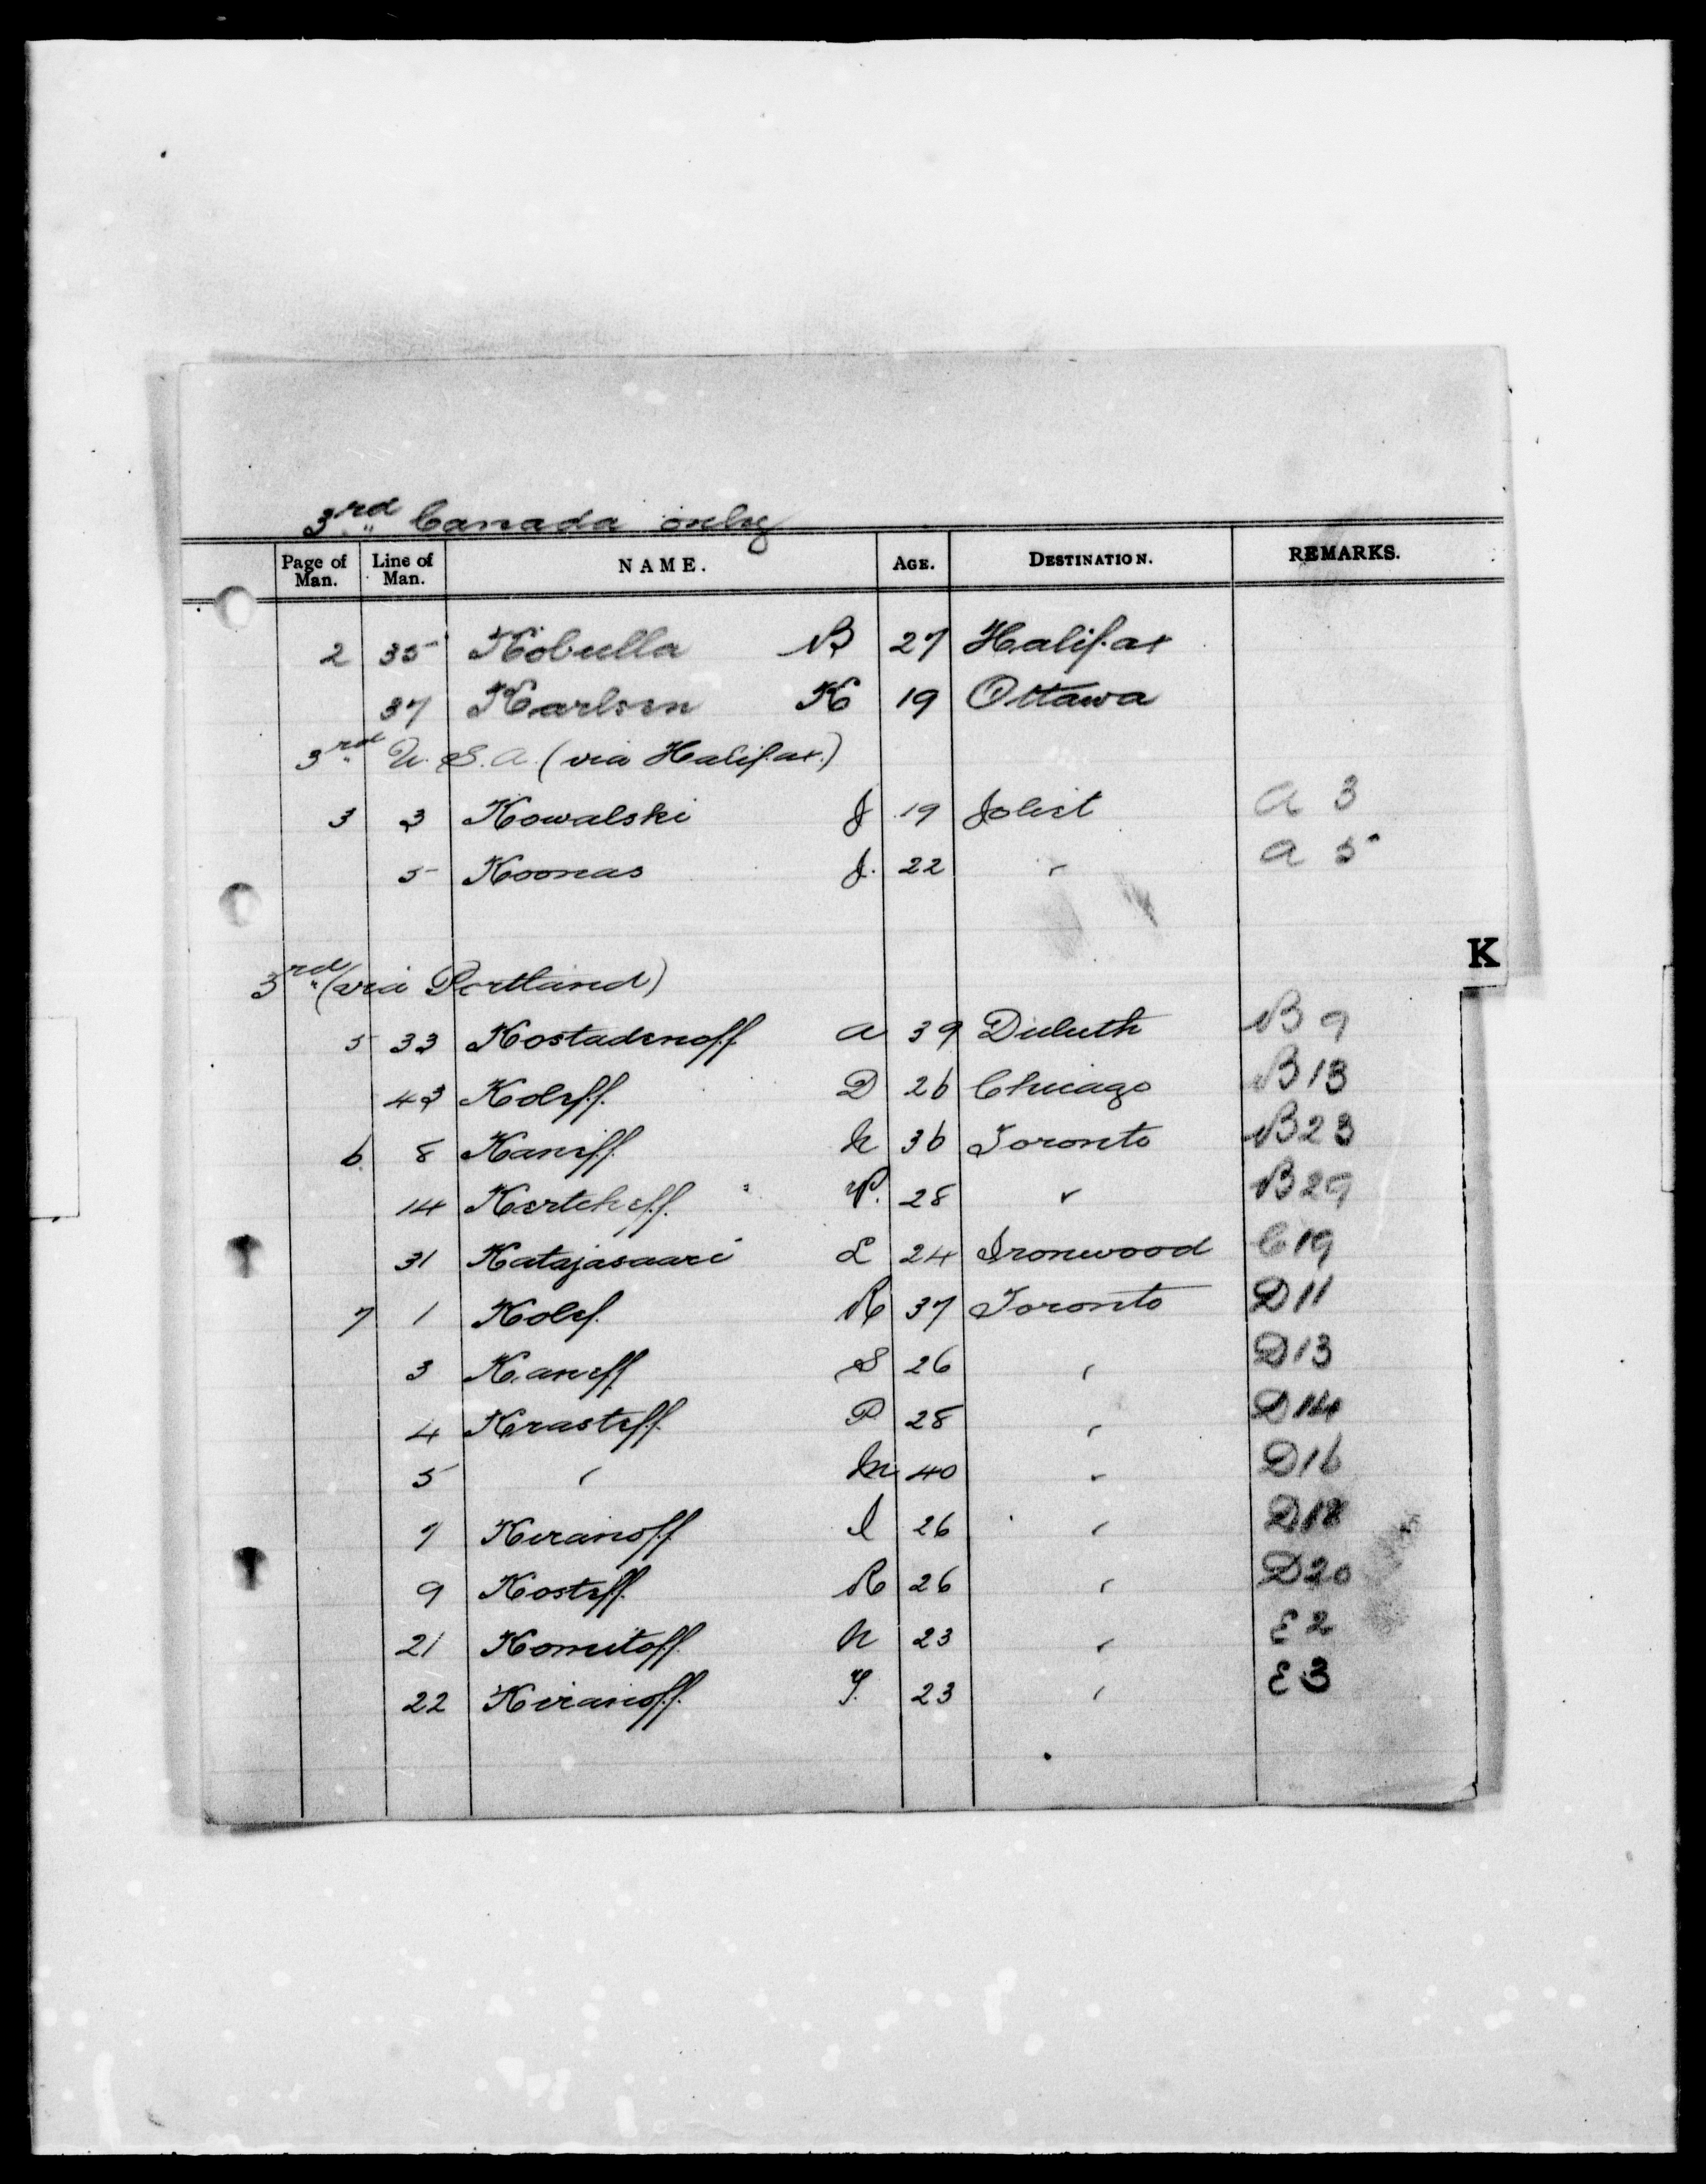 3rd Canada only
Page of Man. Line of Man. NAME. AGE. DESTINATION. REMARKS.
2 35 Kobulla B 27 Halifax
37 Karlsen K 19 Ottawa
3rd U.S.A. (via Halifax.)
3 3 Kowalski J 19 Joliet A 3
5 Koonas J. 22 " A 5
K
3rd (via Portland)
5 33 Kostadenoff A 39 Duluth B 9
43 Koleff D 26 Chicago B13
6 8 Kaneff N 36 Toronto B23
14 Kertcheff P. 28 " B29
31 Katajasaari L 24 Ironwood C19
7 1 Kolef R 37 Toronto D11
3 Kaneff S 26 " D13
4 Krasteff P 28 " D14
5 " M 40 " D16
7 Kiranoff I 26 " D18
9 Kosteff R 26 " D20
21 Komitoff N 23 " E2
22 Kiranoff Y. 23 " E3